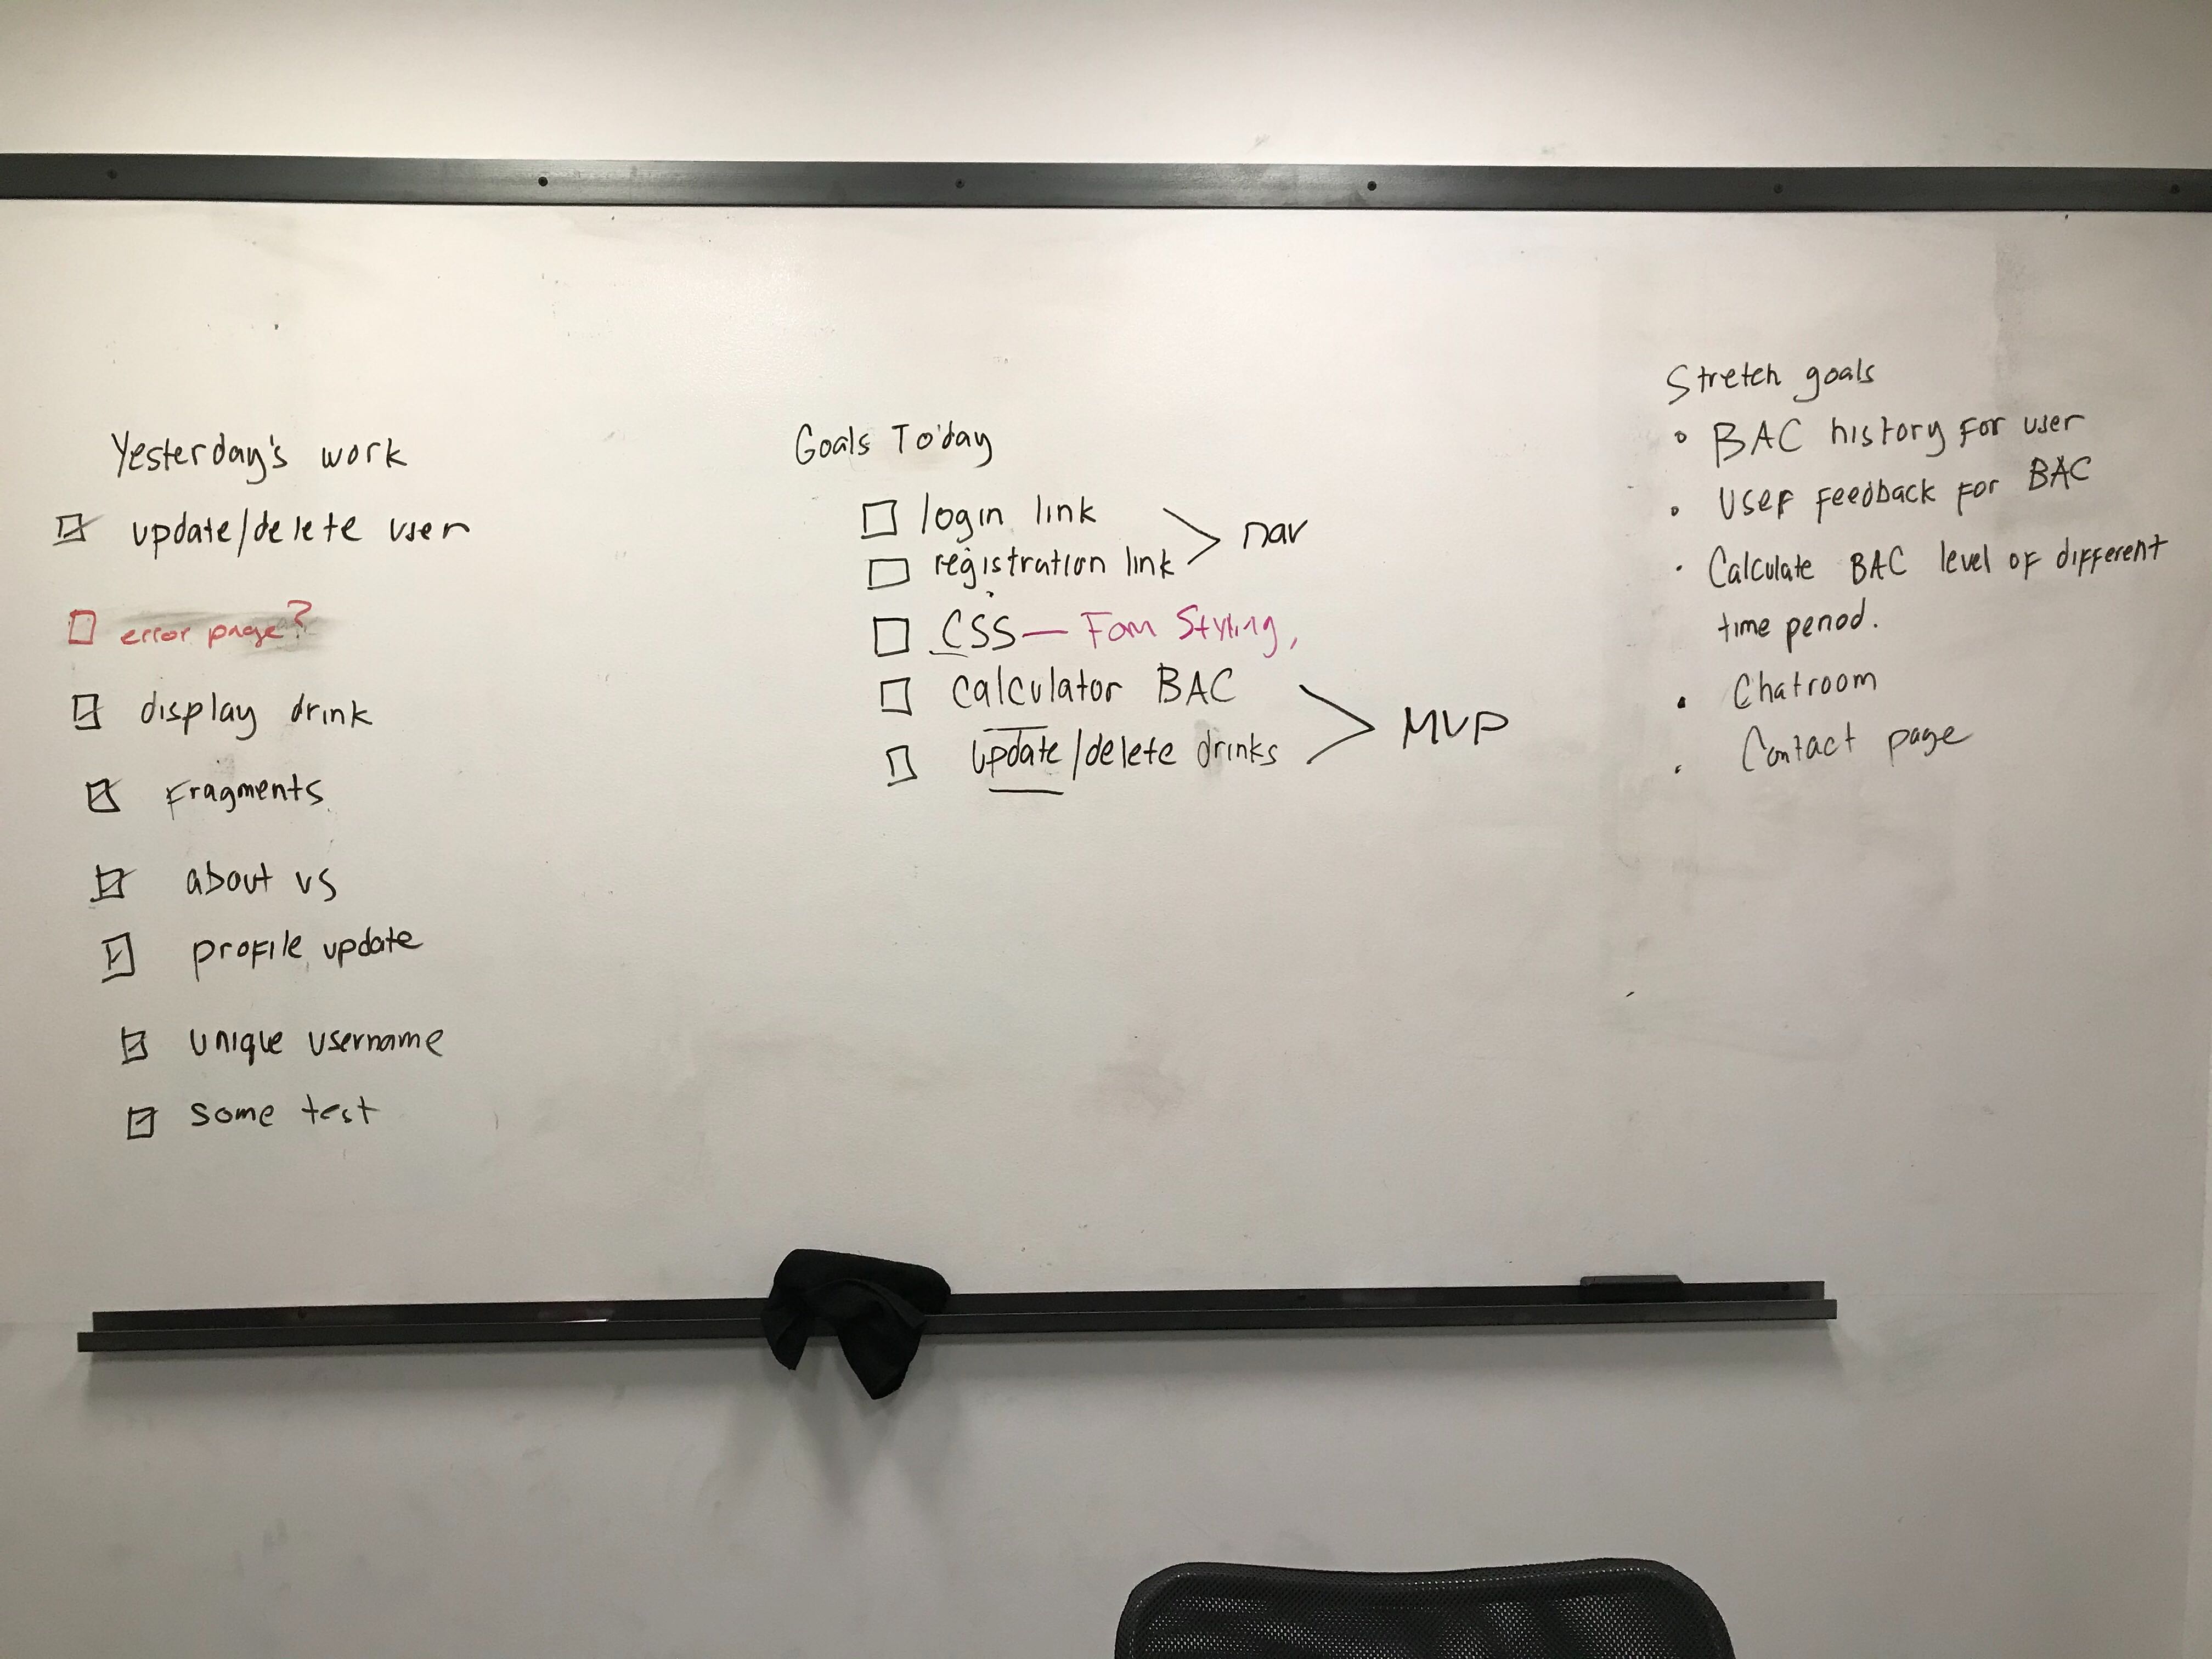 Yesterday's work
update/delete user
error page?
display drink
Fragments
about us
profile update
unique username
some test
Goals Today
login link
registration link
nav
CSS — Fom Styling,
Calculator BAC
update/delete drinks
MVP
Stretch goals
BAC history for user
User feedback for BAC
Calculate BAC level of different
time period.
Chatroom
Contact page